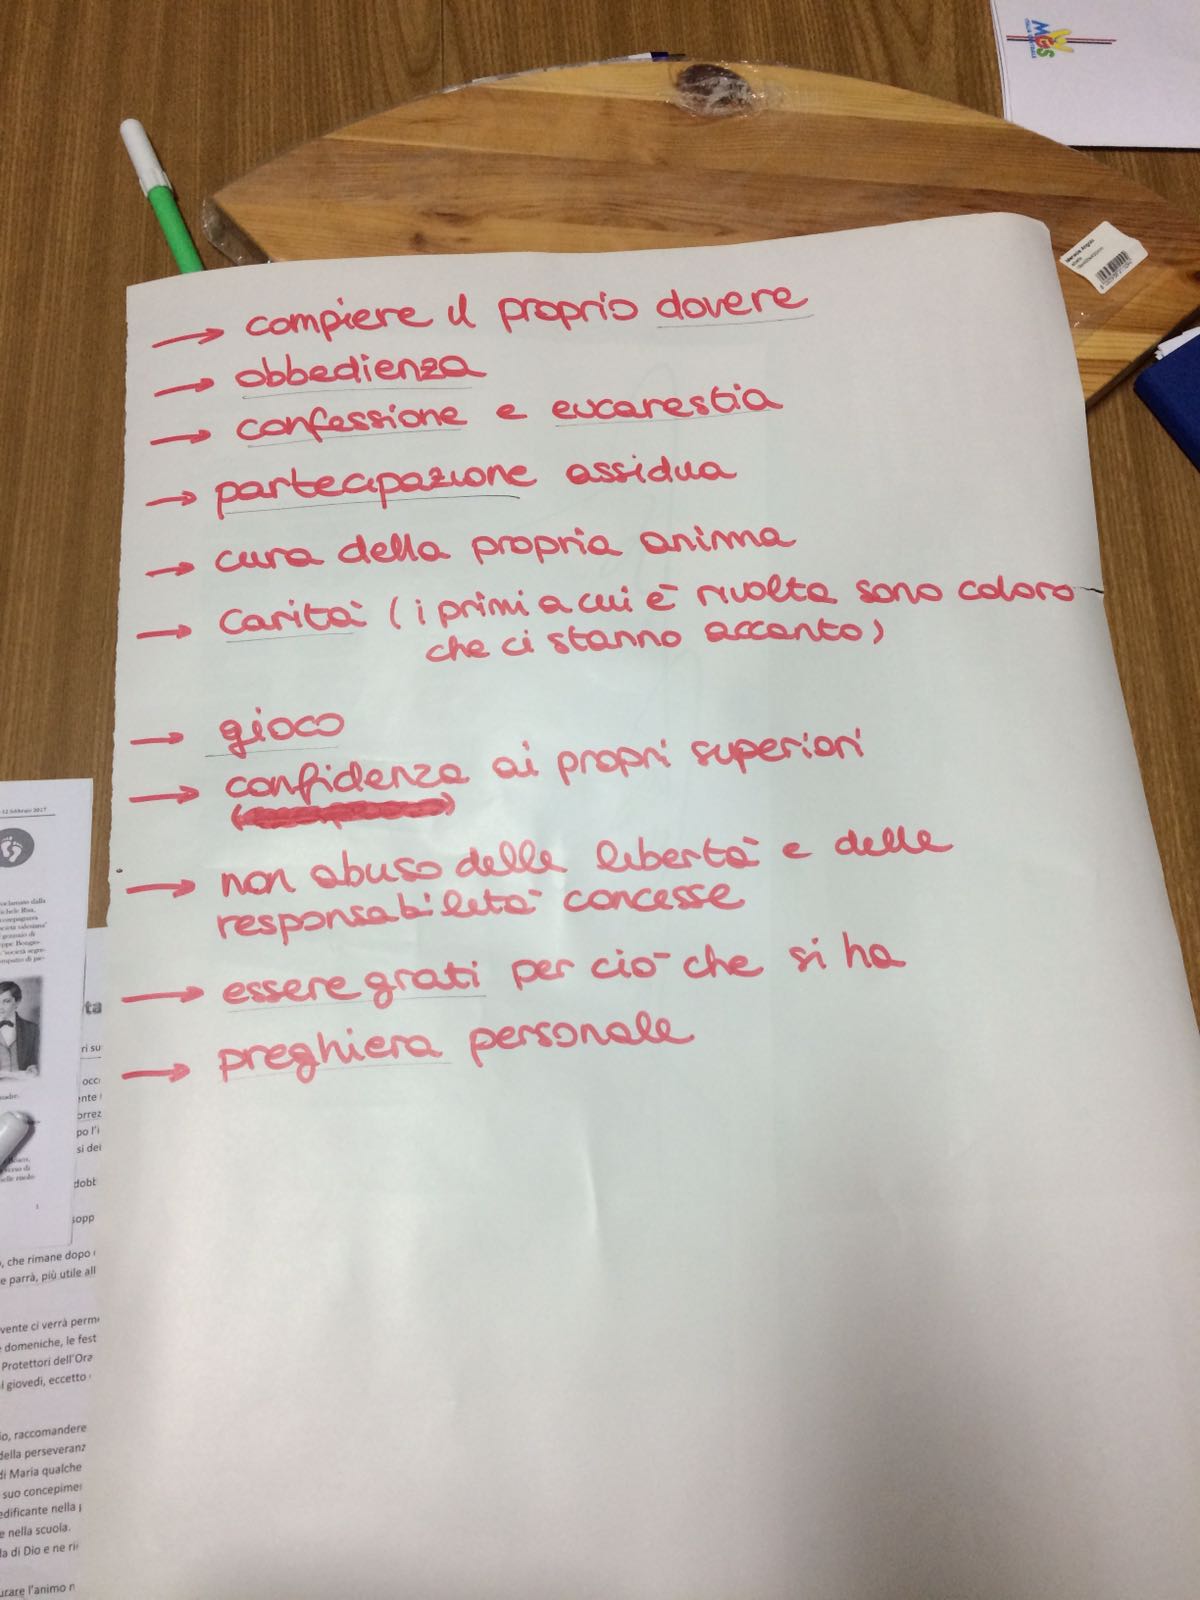 MGS
→ compiere il proprio dovere
→ obbedienza
→ confessione e eucarestia
→ partecipazione assidua
→ cura della propria anima
→ carità (i primi a cui è rivolta sono coloro
che ci stanno accanto)
→ gioco
→ confidenza ai propri superiori
→ non abuso delle libertà e delle
responsabilità concesse
→ essere grati per ciò che si ha
→ preghiera personale
12 febbraio 2017
roclamato dalla
ichele Rua,
compagnava
ocietà salesiana"
gennaio di
eppe Bongio-
"società segre-
ta
ri su
occ
ente
orrez
po l'i
si dei
dobb
sopp
, che rimane dopo
e parrà, più utile all
vente ci verrà perm
e domeniche, le fest
Protettori dell'Ora
l giovedì, eccetto
io, raccomandere
della perseveranz
di Maria qualche
suo concepime
edificante nella
e nella scuola.
la di Dio e ne ri
urare l'animo n